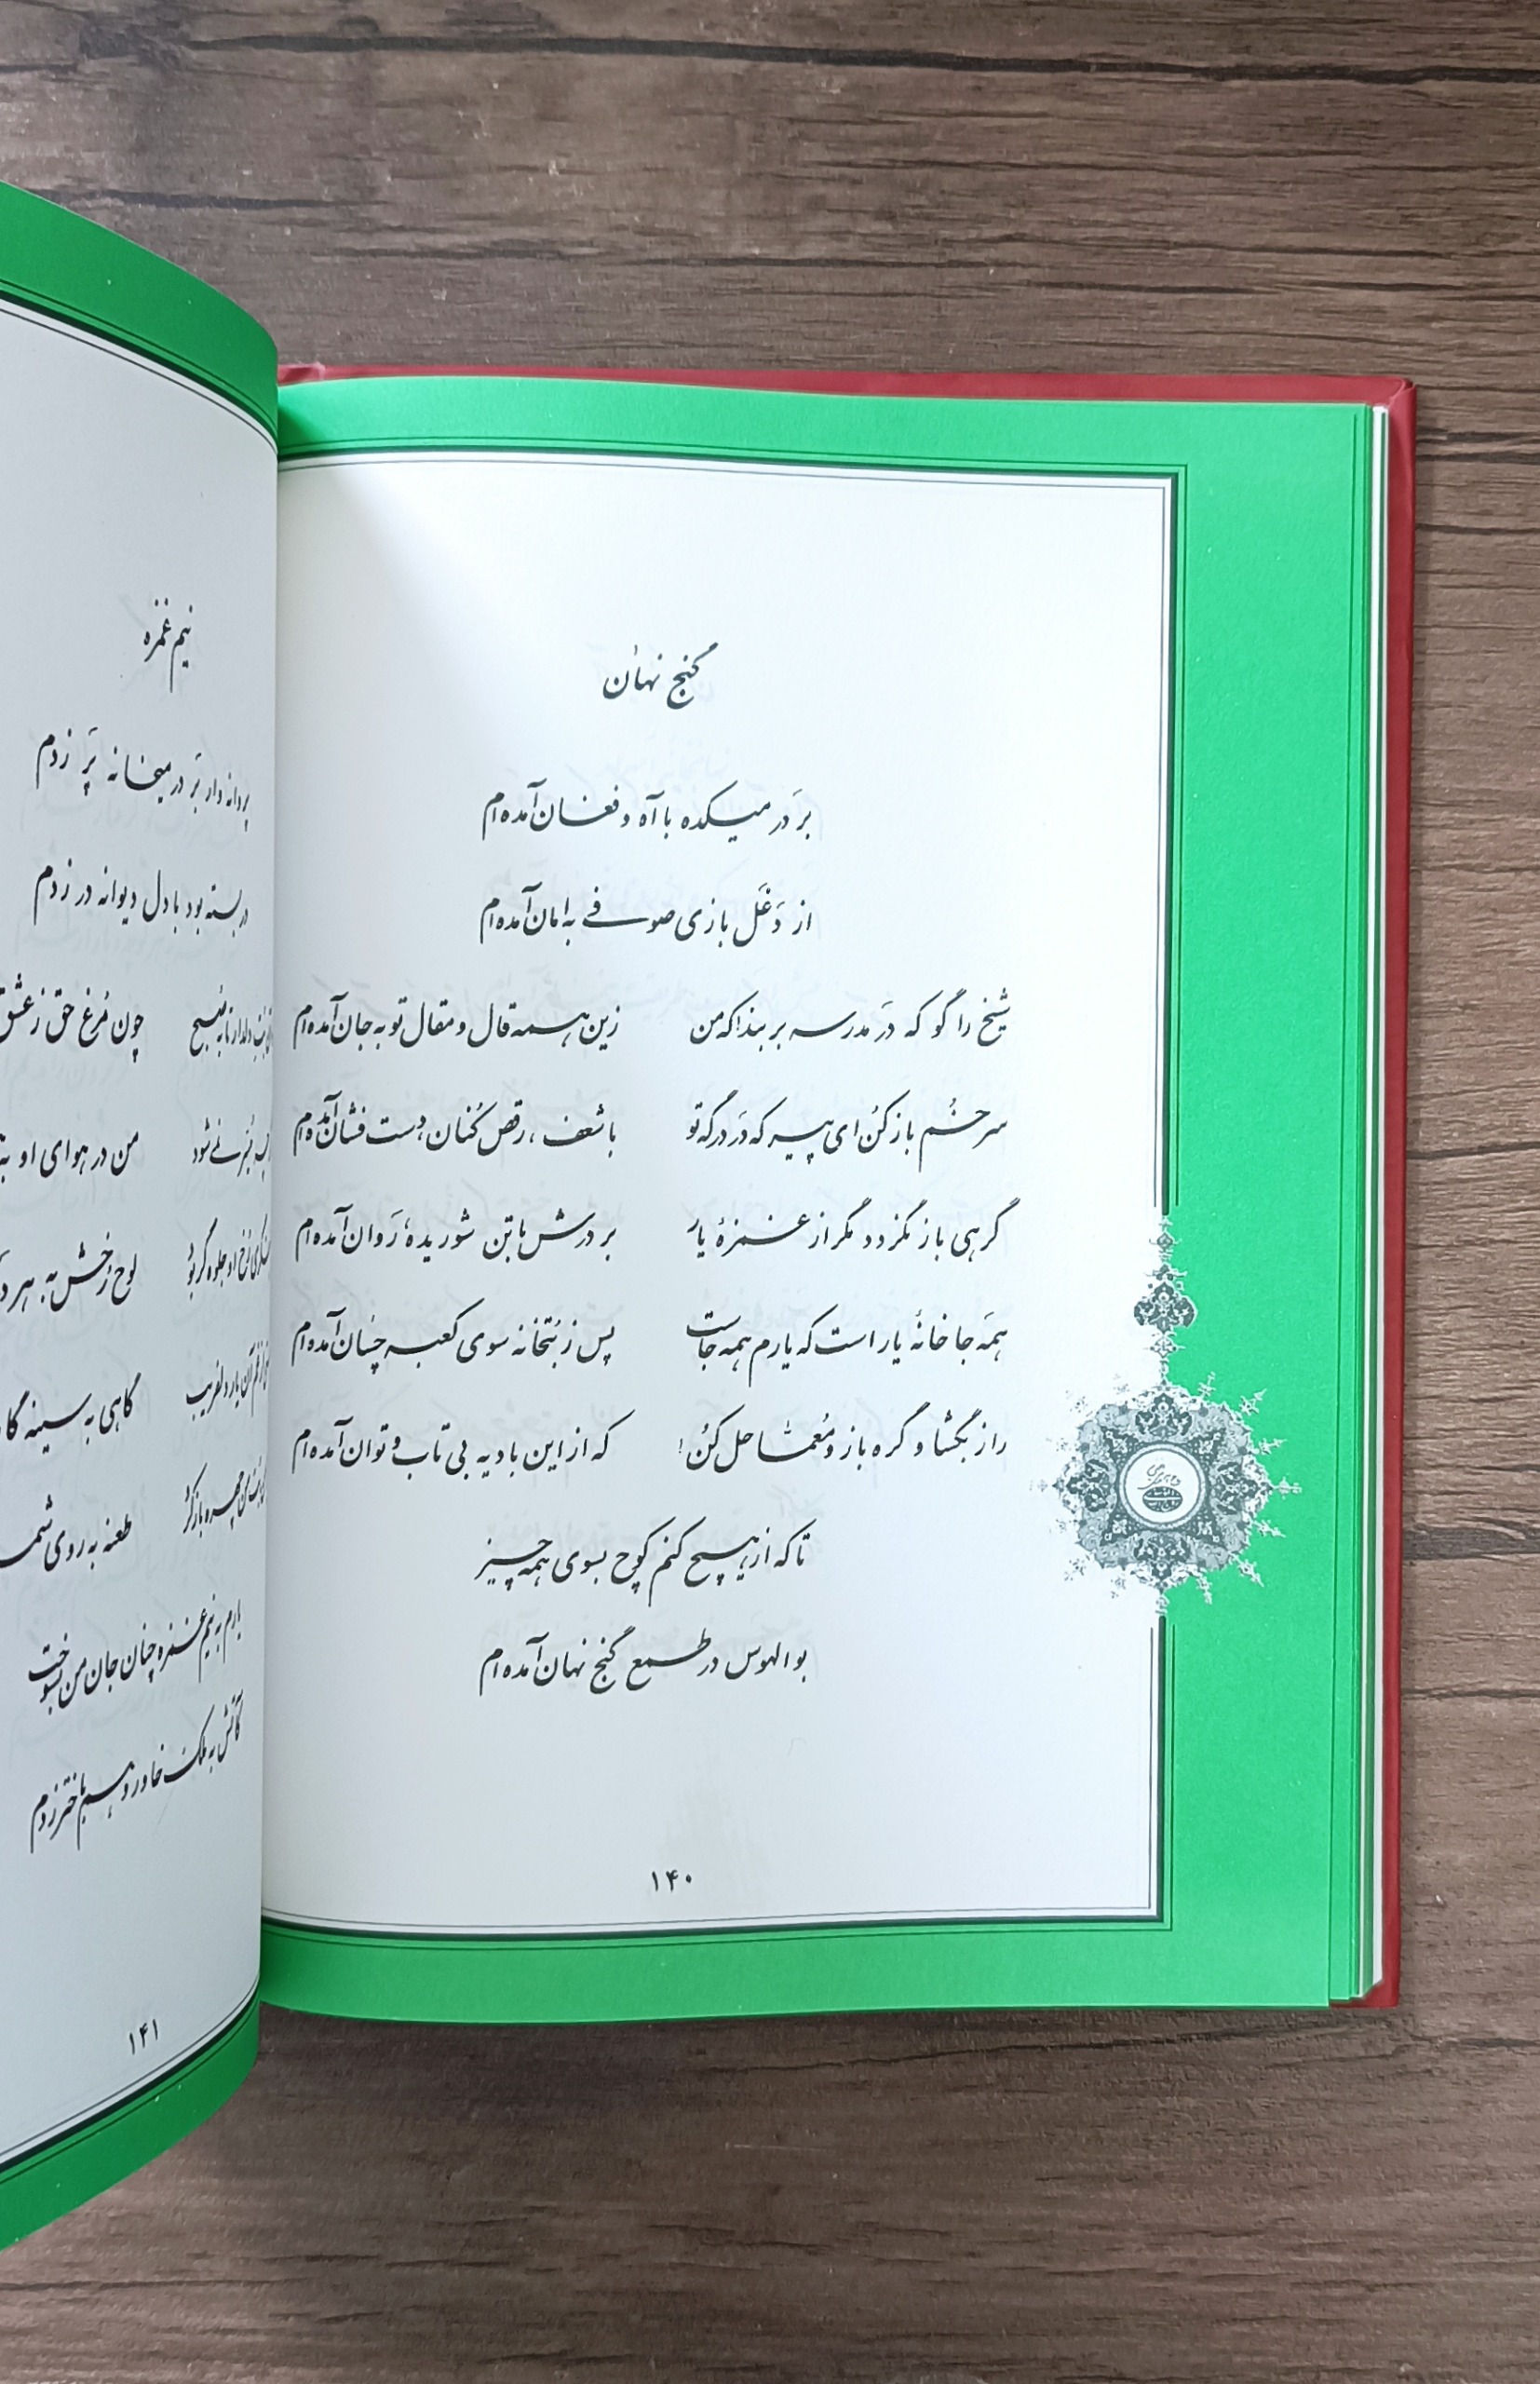 گنج نهان
بَر دَرِ میکده با آه و فغان آمده‌ام
از دَغَل بازی صوفی به امان آمده‌ام
شیخ را گو که دَرِ مدرسه بربند که من زین همه قال و مقال تو به جان آمده‌ام
سر خُم باز کُن ای پیر که دَر درگه تو با شعف، رقص کُنان، دست فشان آمده‌ام
گرهی باز نگردد مگر از غمزهٔ یار بر درش با تن شوریده، رَوان آمده‌ام
همَه جا خانهٔ یار است که یارم همه جاست پس ز بُتخانه سوی کعبه چسان آمده‌ام
راز بگشا و گره باز و مُعمّا حل کُن! که از این بادیه بی تاب و توان آمده‌ام
تا که از هیچ کنم کوچ بسوی همه چیز
بوالهوس در طمع گنج نهان آمده‌ام
۱۴۰
نیم غمزه
پروانه وار بَر در میخانه پَر زدم
در بسته بود با دل دیوانه در زدم
دلدار نابه صُبح چون مُرغ حق ز عشق
من در هوای او
لوح رُخش به هر
گاهی به سینه
چهره باز کرد طعنه به روی
یارم به نیم غمزه چنان جان من بسوخت
کآتش به ملک خاور و هم باختر زدم
۱۴۱